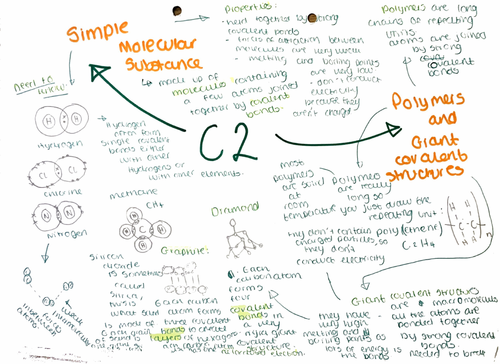 Simple
Molecular
Substance
Properties:
- held together by strong
covalent bonds
- forces of attraction between
molecules are very weak
- melting and boiling points
are very low
- don't conduct
electricity
because they
aren't charged
↳ made up of
molecules containing
a few atoms joined
together by covalent
bonds.
Polymers are long
chains of repeating
units
atoms are joined
by strong
covalent
bonds
Need to
know
C2
Polymers
and
Giant
covalent
structures
H H
Hydrogen
Hydrogen
often forms
single covalent
bonds either
with other
Hydrogens or
with other elements.
Cl Cl
Chlorine
N N
Nitrogen
methane
CH4
H
H C H
H
Diamond
most
polymers
are solid
at
room
temperature
Polymers
are really
long so
you just draw the
repeating unit:
they don't contain
charged particles, so
they don't
conduct electricity
poly(ethene)
C2H4
H H
C C
H H
n
Silicon
dioxide
is sometimes
called
silica
Graphite:
Each carbon forms
three covalent
bonds
layers of hexagons
Each
carbon atom
forms
four
covalent
bonds in
a very
rigid giant
covalent
structure
they have
very high
melting and
boiling points as
lots of energy
Giant covalent structures
are macromolecules
- all the atoms are
bonded together
by strong covalent
bonds
needed to break